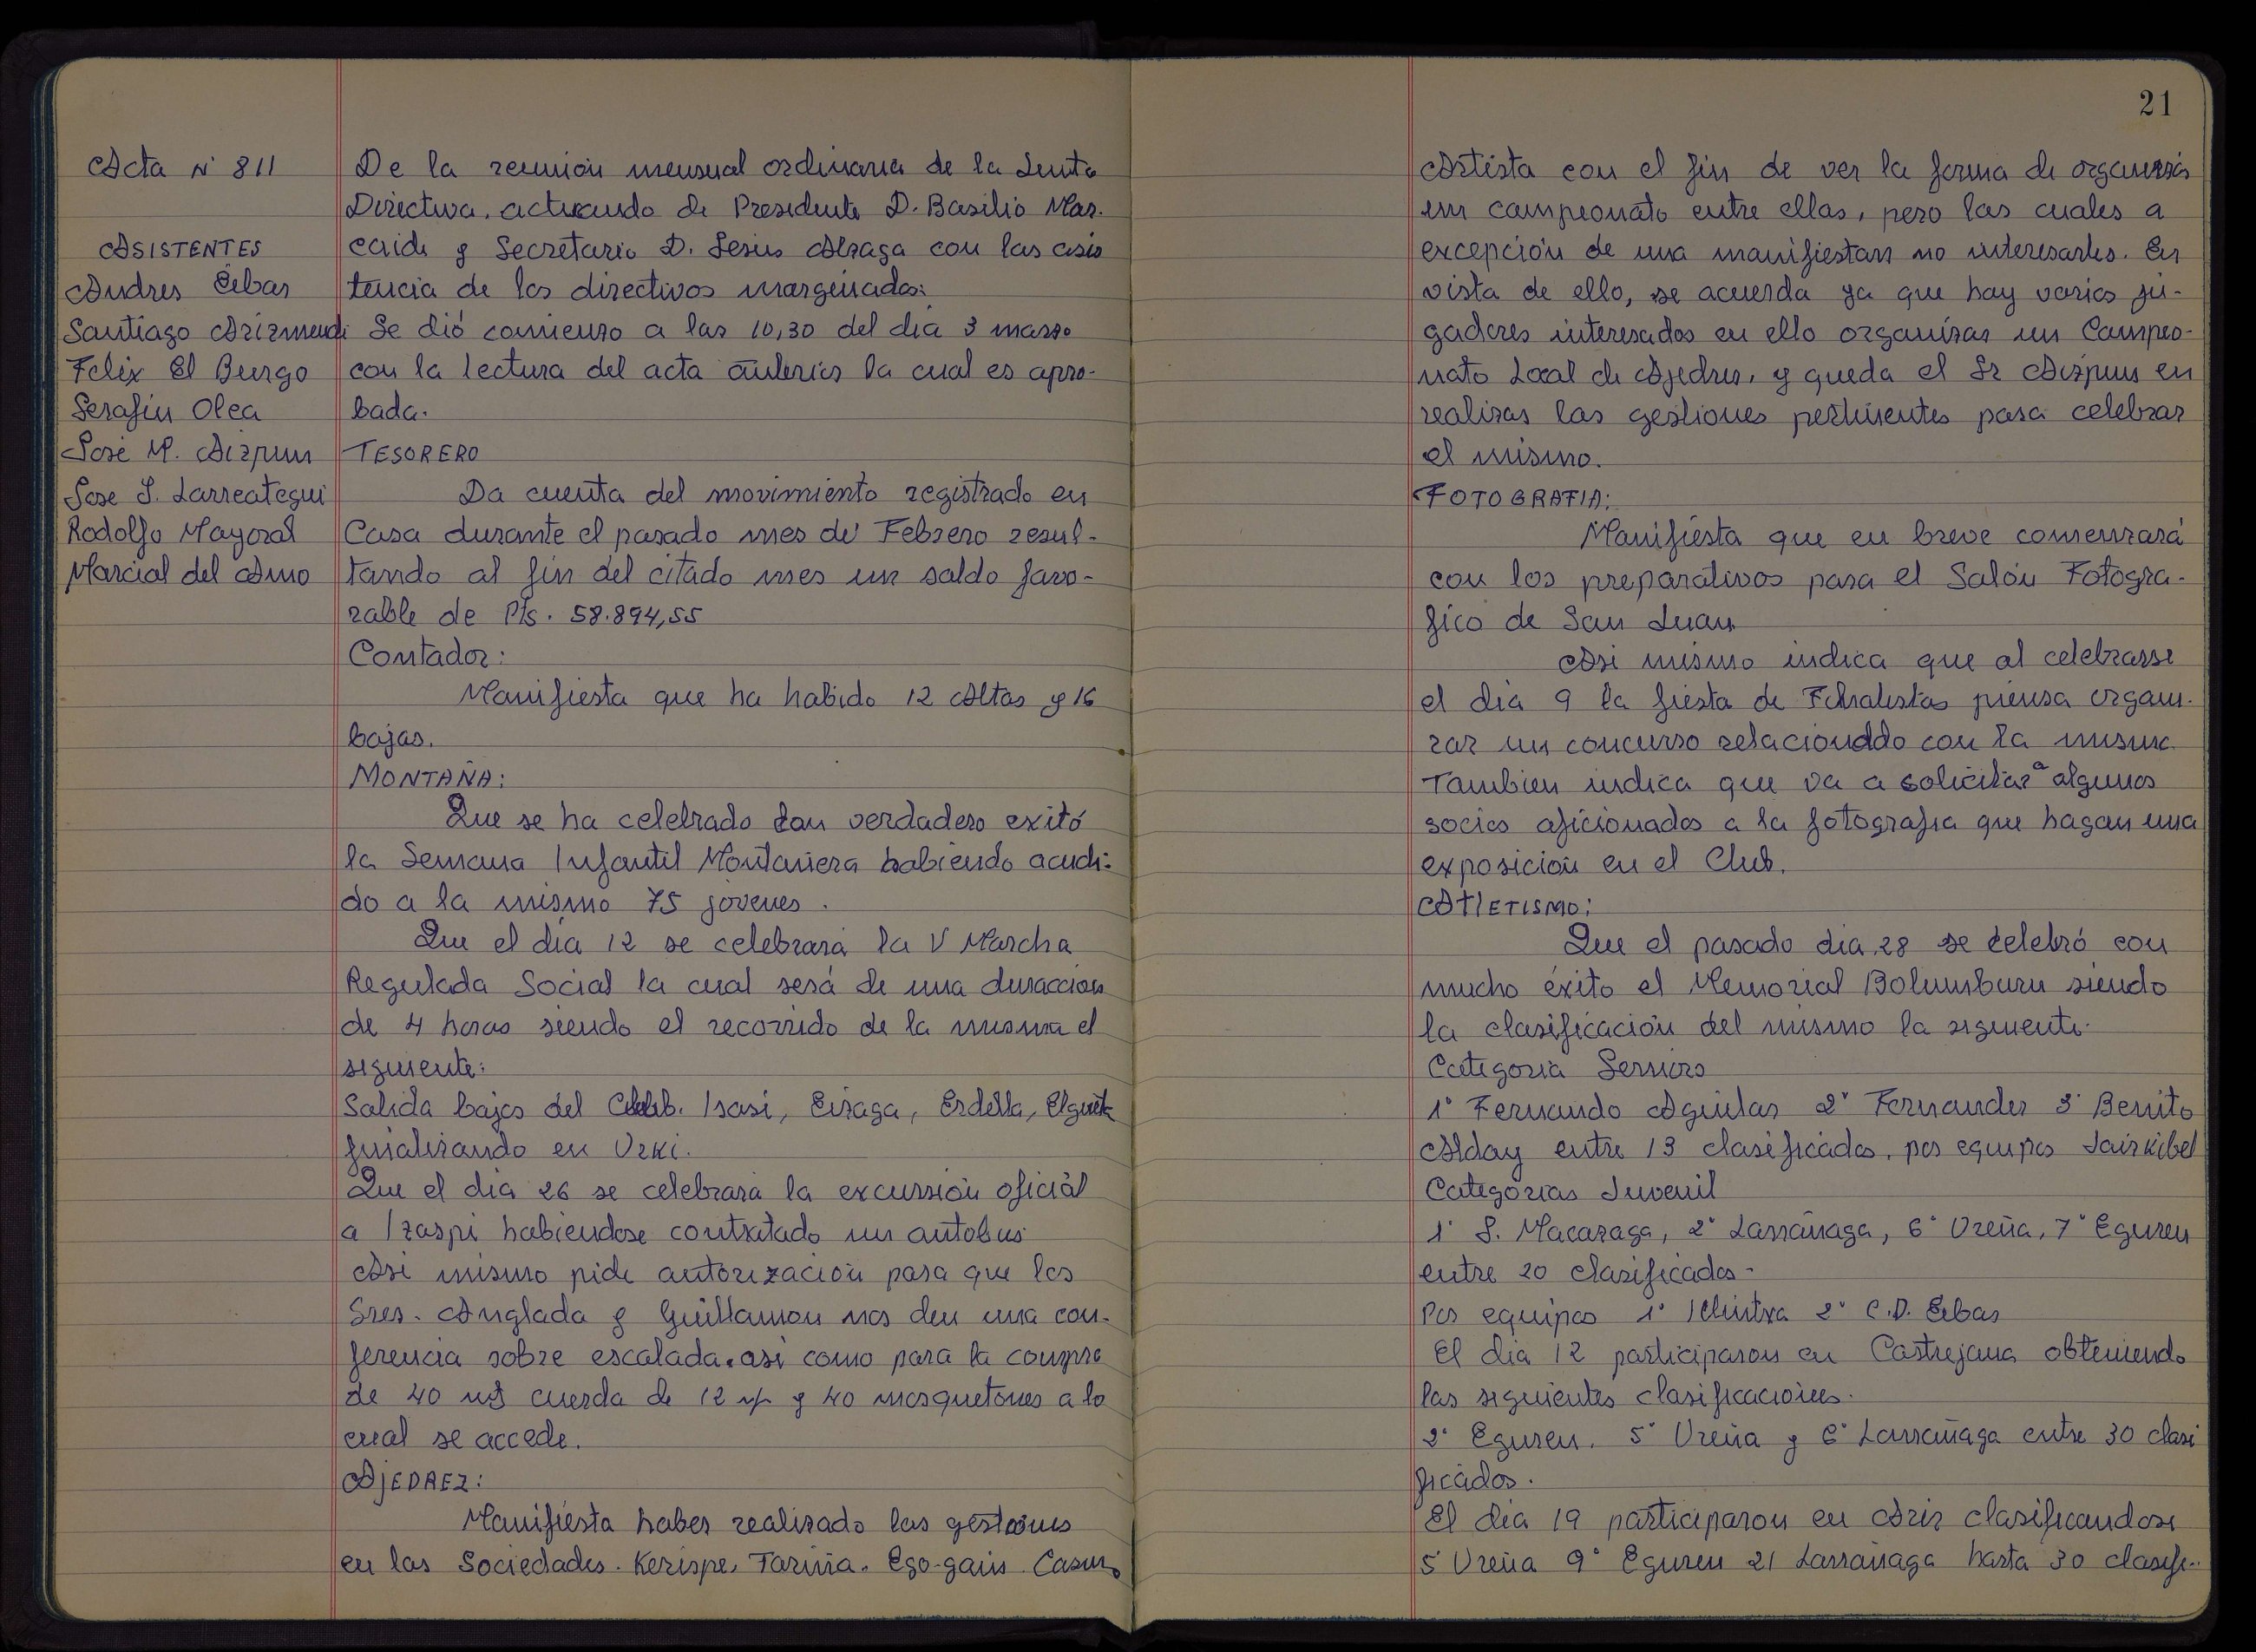 Acta Nº 811
ASISTENTES
Andres Eibar
Santiago Arizmendi
Felix El Burgo
Serafin Olea
José M. Aizpun
Jose I. Larreategui
Rodolfo Mayoral
Marcial del Amo
De la reunión mensual ordinaria de la Junta
Directiva, actuando de Presidente D. Basilio Mar-
caide y Secretario D. Jesus Alzaga con las asis
tencia de los directivos marginados:
Se dió comienzo a las 10,30 del dia 3 marzo
con la lectura del acta anterior la cual es apro-
bada.
TESORERO
Da cuenta del movimiento registrado en
Casa durante el pasado mes de Febrero resul-
tando al fin del citado mes un saldo favo-
rable de Pts. 58.894,55
Contador:
Manifiesta que ha habido 12 Altas y 16
bajas.
MONTAÑA:
Que se ha celebrado con verdadero exitó
la Semana Infantil Montañera habiendo acudi-
do a la mismo 75 jovenes.
Que el dia 12 se celebrará la V Marcha
Regulada Social la cual será de una duraccion
de 4 horas siendo el recorrido de la misma el
siguiente:
Salida bajos del Club. Isasi, Eizaga, Erdella, Elgueta
finalizando en Urki.
Que el dia 26 se celebrara la excursión oficial
a Izaspi habiendose contratado un autobus
Asi mismo pide autorización para que los
Sres. Anglada y Guillamon nos den una con-
ferencia sobre escalada. asi como para la compra
de 40 mts cuerda de 12 y 40 mosquetones a lo
cual se accede.
AJEDREZ:
Manifiesta haber realizado las gestiones
en las Sociedades. Kerizpe, Fariña. Ego-gain. Casino
21
Artista con el fin de ver la forma de organizar
un campeonato entre ellas, pero las cuales a
excepción de una manifiestan no interesarles. En
vista de ello, se acuerda ya que hay varios ju-
gadores interesados en ello organizar un Campeo-
nato Local de Ajedrez, y queda el Sr Aizpun en
realizar las gestiones pertinentes para celebrar
el mismo.
FOTOGRAFIA:
Manifiesta que en breve comenzará
con los preparativos para el Salón Fotogra-
fico de San Juan
Asi mismo indica que al celebrarse
el dia 9 la fiesta de Filatelistas piensa organi-
zar un concurso relacionado con la misma
Tambien indica que va a solicitar a algunos
socios aficionados a la fotografia que hagan una
exposición en el Club.
ATLETISMO:
Que el pasado dia 28 se celebró con
mucho éxito el Memorial Bolumburu siendo
la clasificación del mismo la siguiente.
Categoria Seniors
1º Fernando Aguilar 2º Fernandez 3º Benito
Alday entre 13 clasificados, por equipos Jaizkibel
Categorias Juvenil
1º S. Macazaga, 2º Larrañaga, 6º Ureña, 7º Eguren
entre 20 clasificados-
Por equipos 1º Ilintxa 2º C.D. Eibar
El dia 12 participaron en Castrejana obteniendo
las siguientes clasificaciones.
2º Eguren. 5º Ureña y 6º Larrañaga entre 30 clasi
ficados.
El dia 19 participaron en Ariz clasificandose
5 Ureña 9º Eguren 21 Larrañaga hasta 30 clasifi-